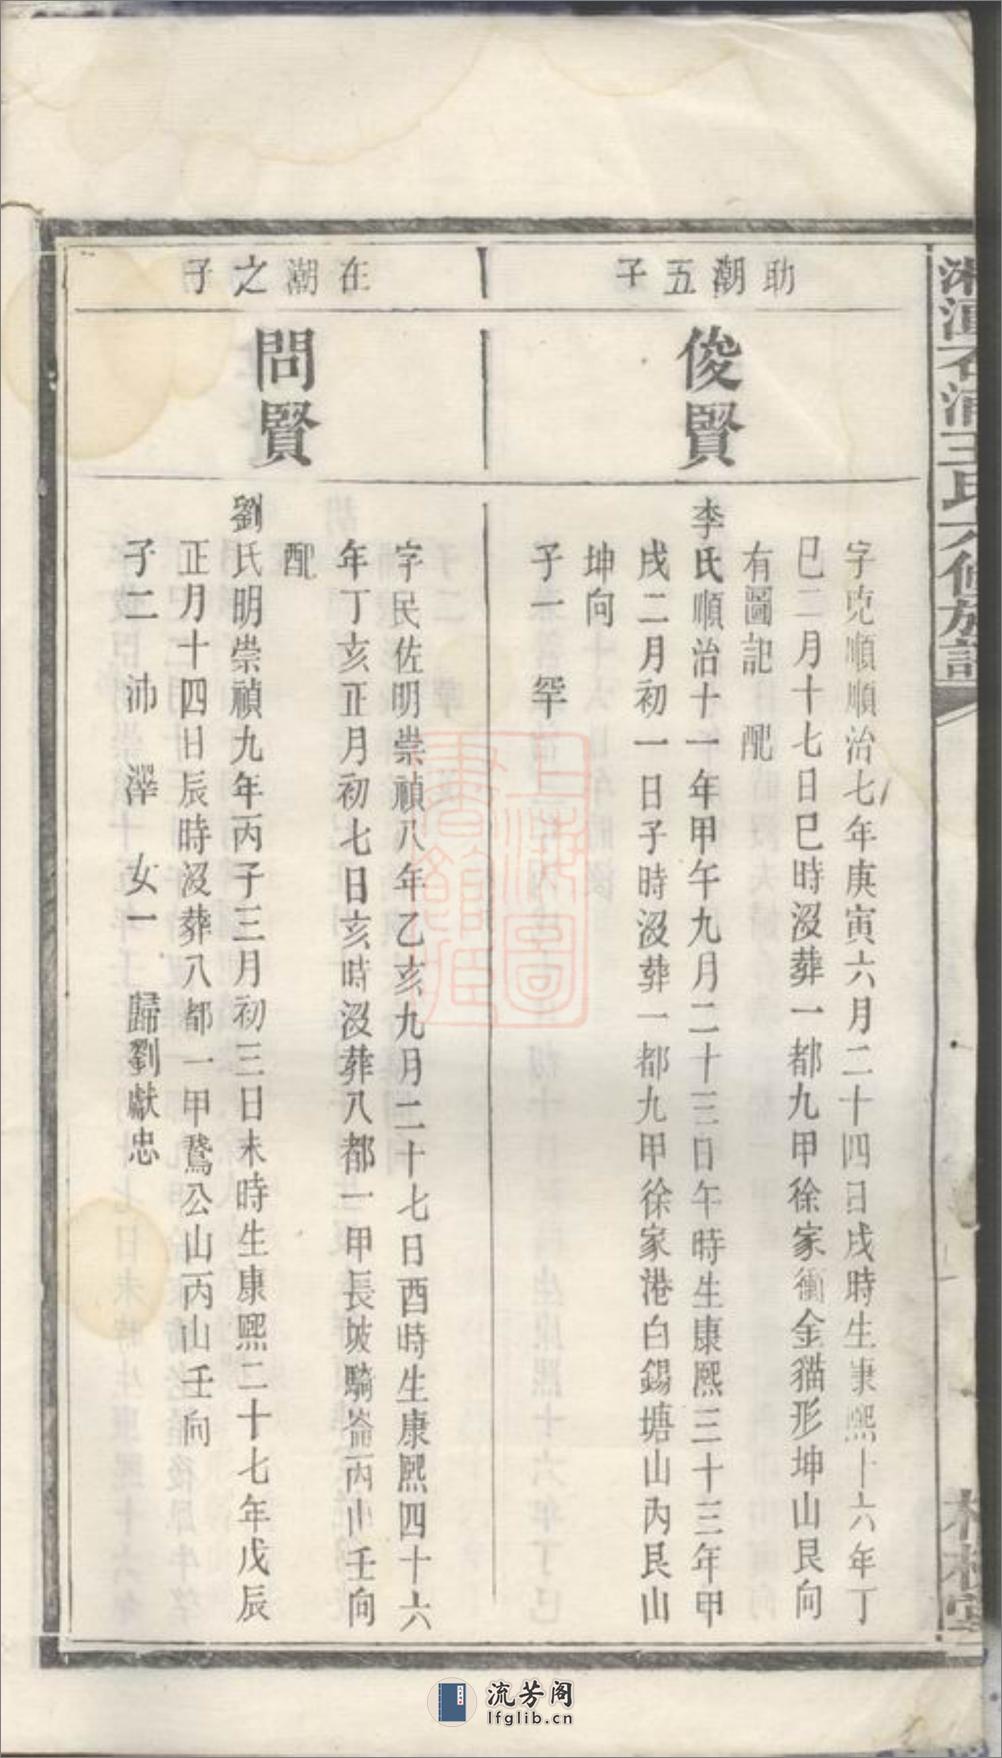 助潮五子
俊賢
字克順順治七年庚寅六月二十四日戌時生康熙十六年丁
巳二月十七日巳時沒葬一都九甲徐家衝金貓形坤山艮向
有圖記　配
李氏順治十一年甲午九月二十三日午時生康熙三十三年甲
戌二月初一日子時沒葬一都九甲徐家港白錫塘山內艮山
坤向
子一　罕
在潮之子
問賢
字民佐明崇禎八年乙亥九月二十七日酉時生康熙四十六
年丁亥正月初七日亥時沒葬八都一甲長坡騎崙丙山壬向
配
劉氏明崇禎九年丙子三月初三日未時生康熙二十七年戊辰
正月十四日辰時沒葬八都一甲鵞公山丙山壬向
子二　沛　澤　女一　歸劉獻忠
上海圖書館藏
流芳阁
lfglib.cn